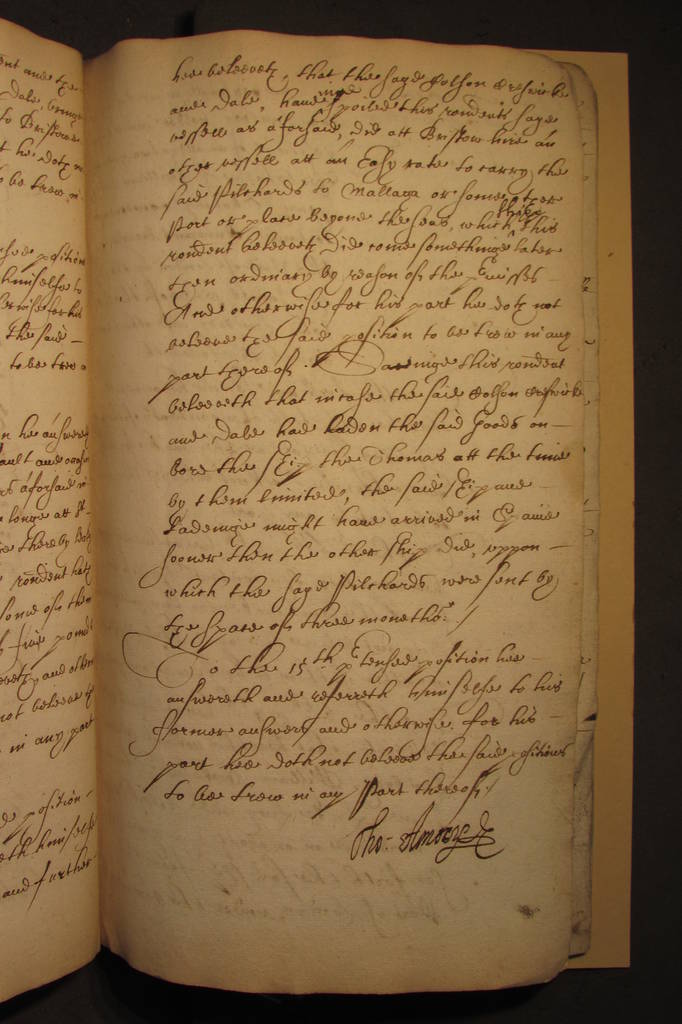 ent and the
Dale, bring
to Bristow
t he doth n
o be trew in
position
himselfe to
for his
the said -
to be trew
n he answer
ault and
rs aforesaid
longe att
there by
rondent hath
some of them
five pounds
and other
not beleeve
in any part
position -
eth himselfe
and further
hee beleeveth, that the sayd Colson Treswicke
and Dale, haveinge spoiled this rondents sayd
vessell as aforsaid, did att Bristow hire an
other vessell att an Easy rate to carry the
said Pilchards to Mallaga or some other
Port or place beyond the seas, which shipp this
rondent beleeveth did come somethinge later
then ordinary by reason of the premisses -
And otherwise for his part he doth not
beleeve the said position to be trew in any
part thereof. Saveinge this rondent
beleeveth that in case the said Colson Treswicke
and Dale had laden the said goods on -
bord the ship the Thomas att the time
by them limited, the said ship and -
Ladeinge might have arrived in Spaine
sooner then the other ship did, uppon -
which the sayd Pilchards were sent by
the space of three moneths. /
To the 15th pretensed position hee -
answereth and referreth himselfe to his
former answers and otherwise for his -
part hee doth not beleeve the said positions
to bee trew in any Part thereof. /
Tho: Amory